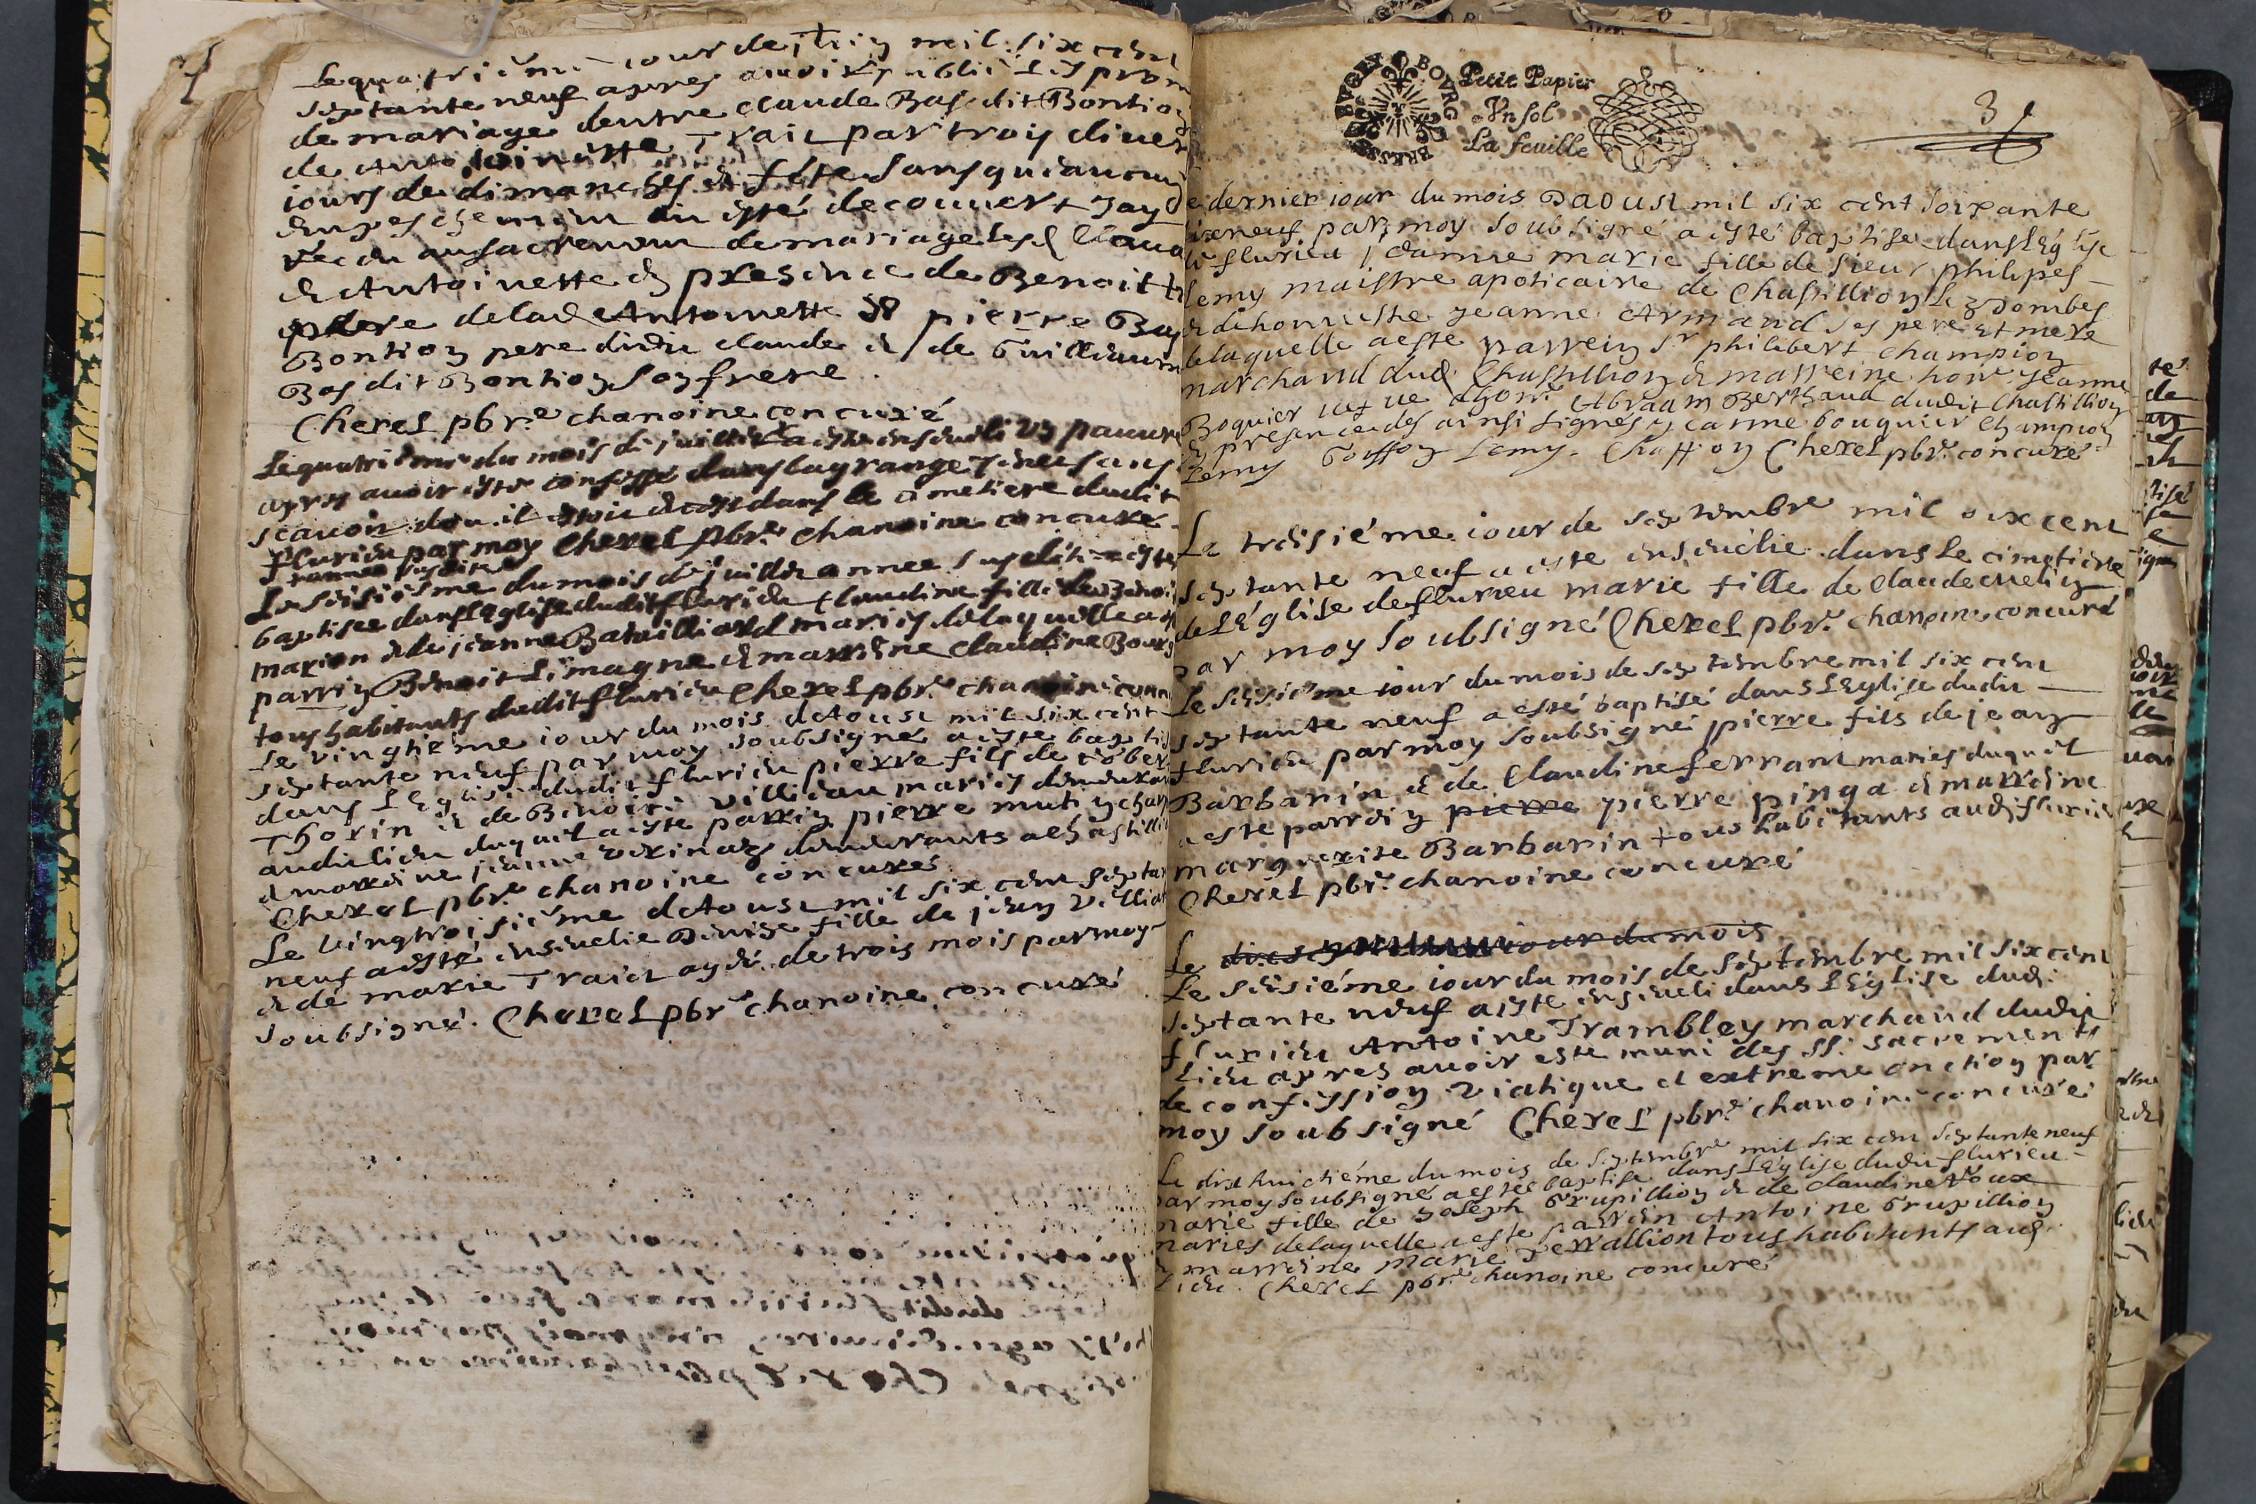 Le quatriéme iour de juin mil six cent
septante neuf apres auoir publié les prom
de mariage dentre claude Bas dit Bontion
de Antoinette Trail par trois diuer
iours de dimanches et féte sans qu'aucun
empeschement ait esté decouuert Jay
recu au sacrement de mariage lesd Claud
et Antoinette en presence de Benoit
pere de lad Antoinette et pierre Bas
Bontion pere dudit claude et de Guilliaume
Bas dit Bontion son frere.
Cherel pbre chanoine concuré
Le quatriéme du mois de juillet a esté enseueli un pauure
apres auoir esté confessé dans la grange sans
scauoir dou il estoit et cest dans le cimetiere dudit
flurieu par moy Cherel pbre chanoine concure
l'annee susdite
Le seisiéme du mois de juillet annee susdite a este
baptisee dans l'Eglise dudit flurieu Claudine fille de Benoit
marion et de jeanne Batailliard mariés de laquelle a
parrin Benoit Limagne et marreine Claudine Bour
tous habitants dudit flurieu Cherel pbre chanoine concu
Le vingtiéme iour du mois d'Aoust mil six cent
septante neuf par moy soubsigné a esté baptis
dans l'Eglise dudit flurieu pierre fils de rober
Thorin et de Benoite villieau mariés demeurant
audit lieu duquel a esté parrin pierre mutin
et marreine jeanne demeurants a chastillion
Cherel pbre chanoine concuré
Le vingtroisiéme d'Aoust mil six cent septan
neuf a esté enseuelie Denise fille de jean Villia
et de marie Traict agée de trois mois par moy
soubsigné. Cherel pbre chanoine concuré
BOVRG BRESSE BVGEY
Petit Papier
Vn sol
La feuille
3
Le dernier iour du mois Daoust mil six cent soixante
neuf par moy soubsigné a esté baptise dans l'Eglise
de flurieu jeanne marie fille de sieur philipes
Lemy maistre apoticaire de Chastillion Lez Dombes
et dhonneste jeanne Armand ses pere et mere
de laquelle a este parrein Sr philibert champion
marchand dud Chastillion et marreine honê jeanne
Boquier uefue dhonê Abraam Berthaud dudit Chastillion
en presence des ainsi signés jeanne bouquier Champion
Lemy Goiffon Lemy. Chaffon Cherel pbre concuré
Le troisiéme iour de septembre mil six cent
septante neuf a este enseuelie dans le cimetiere
de l'Eglise de flurieu marie fille de Claude
par moy soubsigné Cherel pbre chanoine concuré
Le seisiéme iour du mois de septembre mil six cent
septante neuf a esté baptisé dans l'Eglise dudit
flurieu par moy soubsigné pierre fils de jean
Barbarin et de Claudine ferrant mariés duquel
a este parrein pierre pierre pinga et marreine
marguerite Barbarin tous habitants aud flurieu
Cherel pbre chanoine concuré
Le iour du mois
Le seisiéme iour du mois de septembre mil six cent
septante neuf a esté enseueli dans l'Eglise dud
flurieu Antoine Trambley marchand dudit
lieu apres auoir este muni des ss. sacrements
de confession viatique et extreme onction par
moy soubsigné Cherel pbre chanoine concuré
Le dixhuictiéme du mois de septembre mil six cent septante neuf
par moy soubsigné a este baptise dans l'Eglise dudit flurieu
marie fille de joseph Grupillion et de claudine Roux
mariés de laquelle a este parrein Antoine Grupillion
et marreine marie Perrallion tous habitants aud
lieu. Cherel pbre chanoine concuré